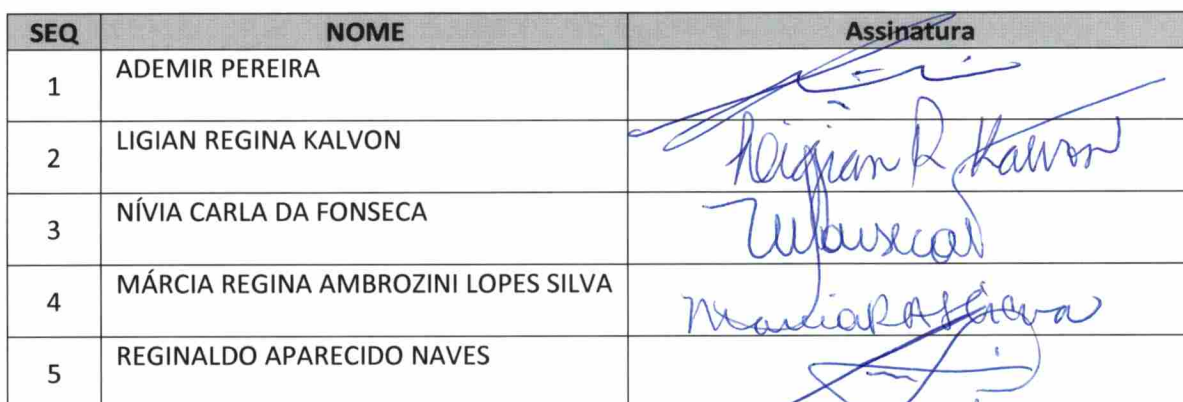 SEQ NOME Assinatura
1 ADEMIR PEREIRA
2 LIGIAN REGINA KALVON Ligian R Kalvon
3 NÍVIA CARLA DA FONSECA
4 MÁRCIA REGINA AMBROZINI LOPES SILVA
5 REGINALDO APARECIDO NAVES